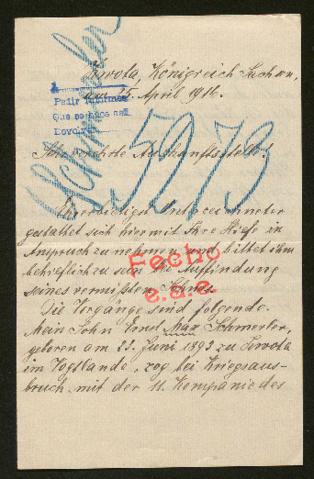 Schmerler
Zwota, Königreich Sachsen,
am 25. April 1916.
5973
Sehr verehrte Auskunftsstelle!
Ihr ergebenst Unterzeichneter
gestattet sich hiermit Ihre Hilfe in
Anspruch zu nehmen und bittet ihm
behilflich zu sein die Auffindung
seines vermißten Sohnes.
Feche
e.a.e
Die Vorgänge sind folgende.
Mein Sohn Ernst Max Schmerler,
geboren am 23. Juni 1893 zu Zwota
im Vogtlande, zog bei Kriegsaus-
bruch mit der 11. Kompanie des